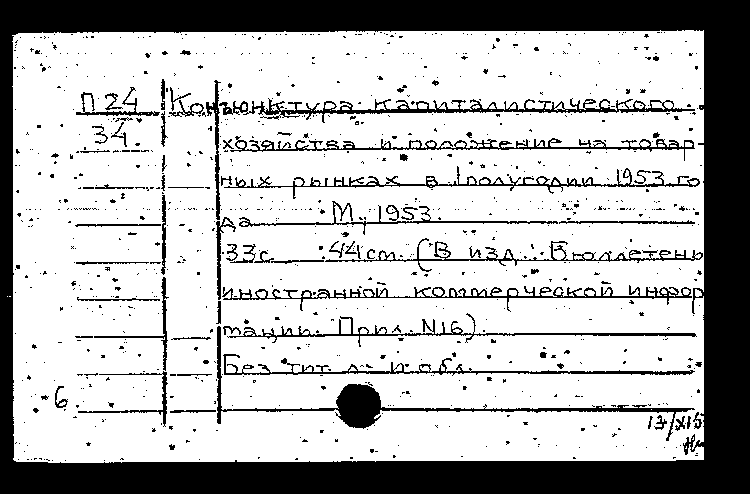 П 24 Конъюнктура капиталистического
34 хозяйства и положение на товар-
ных рынках в I полугодии 1953 го
да М, 1953.
33с 44см. (В изд.: Бюллетень
иностранной коммерческой инфор
мации. Прил. N16).
Без тит. л. и обл.
6